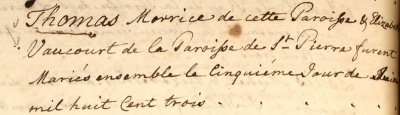 Thomas Morrice de cette Paroisse &
Vaucourt de la Paroisse de St. Pierre furent
Mariés ensemble le Cinquiéme Jour de
mil huit Cent trois .